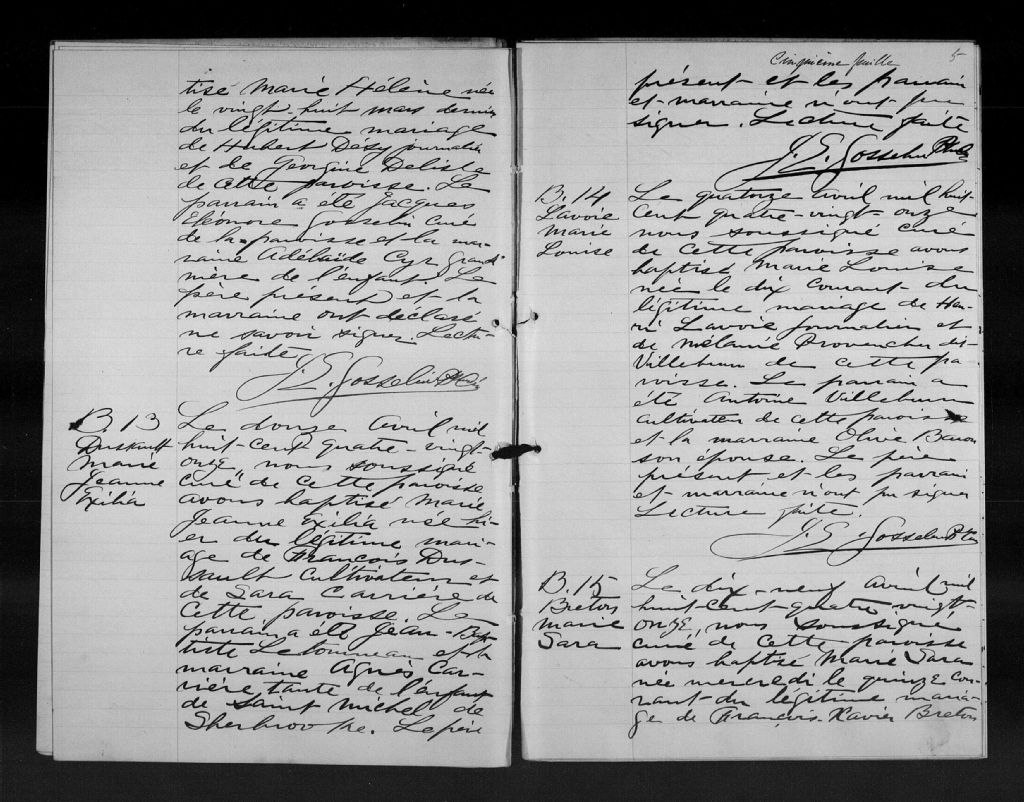 tisé Marie Hélène née
le vingt-huit mars dernier
du légitime mariage
de Hubert Désy journalier
et de Georgine Delisle
de cette paroisse. Le
parrain a été Jacques
Eléonore Gosselin curé
de la paroisse et la mar-
raine Adélaïde Cyr grand
mère de l'enfant. Le
père présent et la
marraine ont déclaré
ne savoir signer. Lectu-
re faite.
J. E. Gosselin Ptre
B. 13
Dussault
Marie
Jeanne
Exilia
Le douze avril mil
huit-cent quatre-vingt-
onze, nous soussigné
curé de cette paroisse
avons baptisé Marie
Jeanne Exilia née hi-
er du légitime mari-
age de François Dus-
sault cultivateur et
de Sara Carrière de
cette paroisse. Le
parrain a été Jean-Bap
tiste Lebonneau et la
marraine Agnès Car-
rière, tante de l'enfant
de Saint Michel de
Sherbrooke. Le père
Cinquième feuille 5
présent et les parrain
et marraine n'ont pu
signer. Lecture faite
J. E. Gosselin Ptre
B. 14
Lavoie
Marie
Louise
Le quatorze avril mil huit
cent quatre-vingt onze
nous soussigné curé
de cette paroisse avons
baptisé Marie Louise
née le dix courant du
légitime mariage de Hen-
ri Lavoie journalier et
de Mélanie Provencher dit
Villebrun de cette pa-
roisse. Le parrain a
été Antoine Villebrun
cultivateur de cette paroisse
et la marraine Olive Baron
son épouse. Le père
présent et les parrain
et marraine n'ont pu signer
Lecture faite.
J. E. Gosselin Ptre
B. 15
Breton
Marie
Sara
Le dix-neuf avril mil
huit-cent-quatre-vingt-
onze, nous soussigné
curé de cette paroisse
avons baptisé Marie Sara
née mercredi le quinze cou-
rant du légitime maria-
ge de François-Xavier Breton